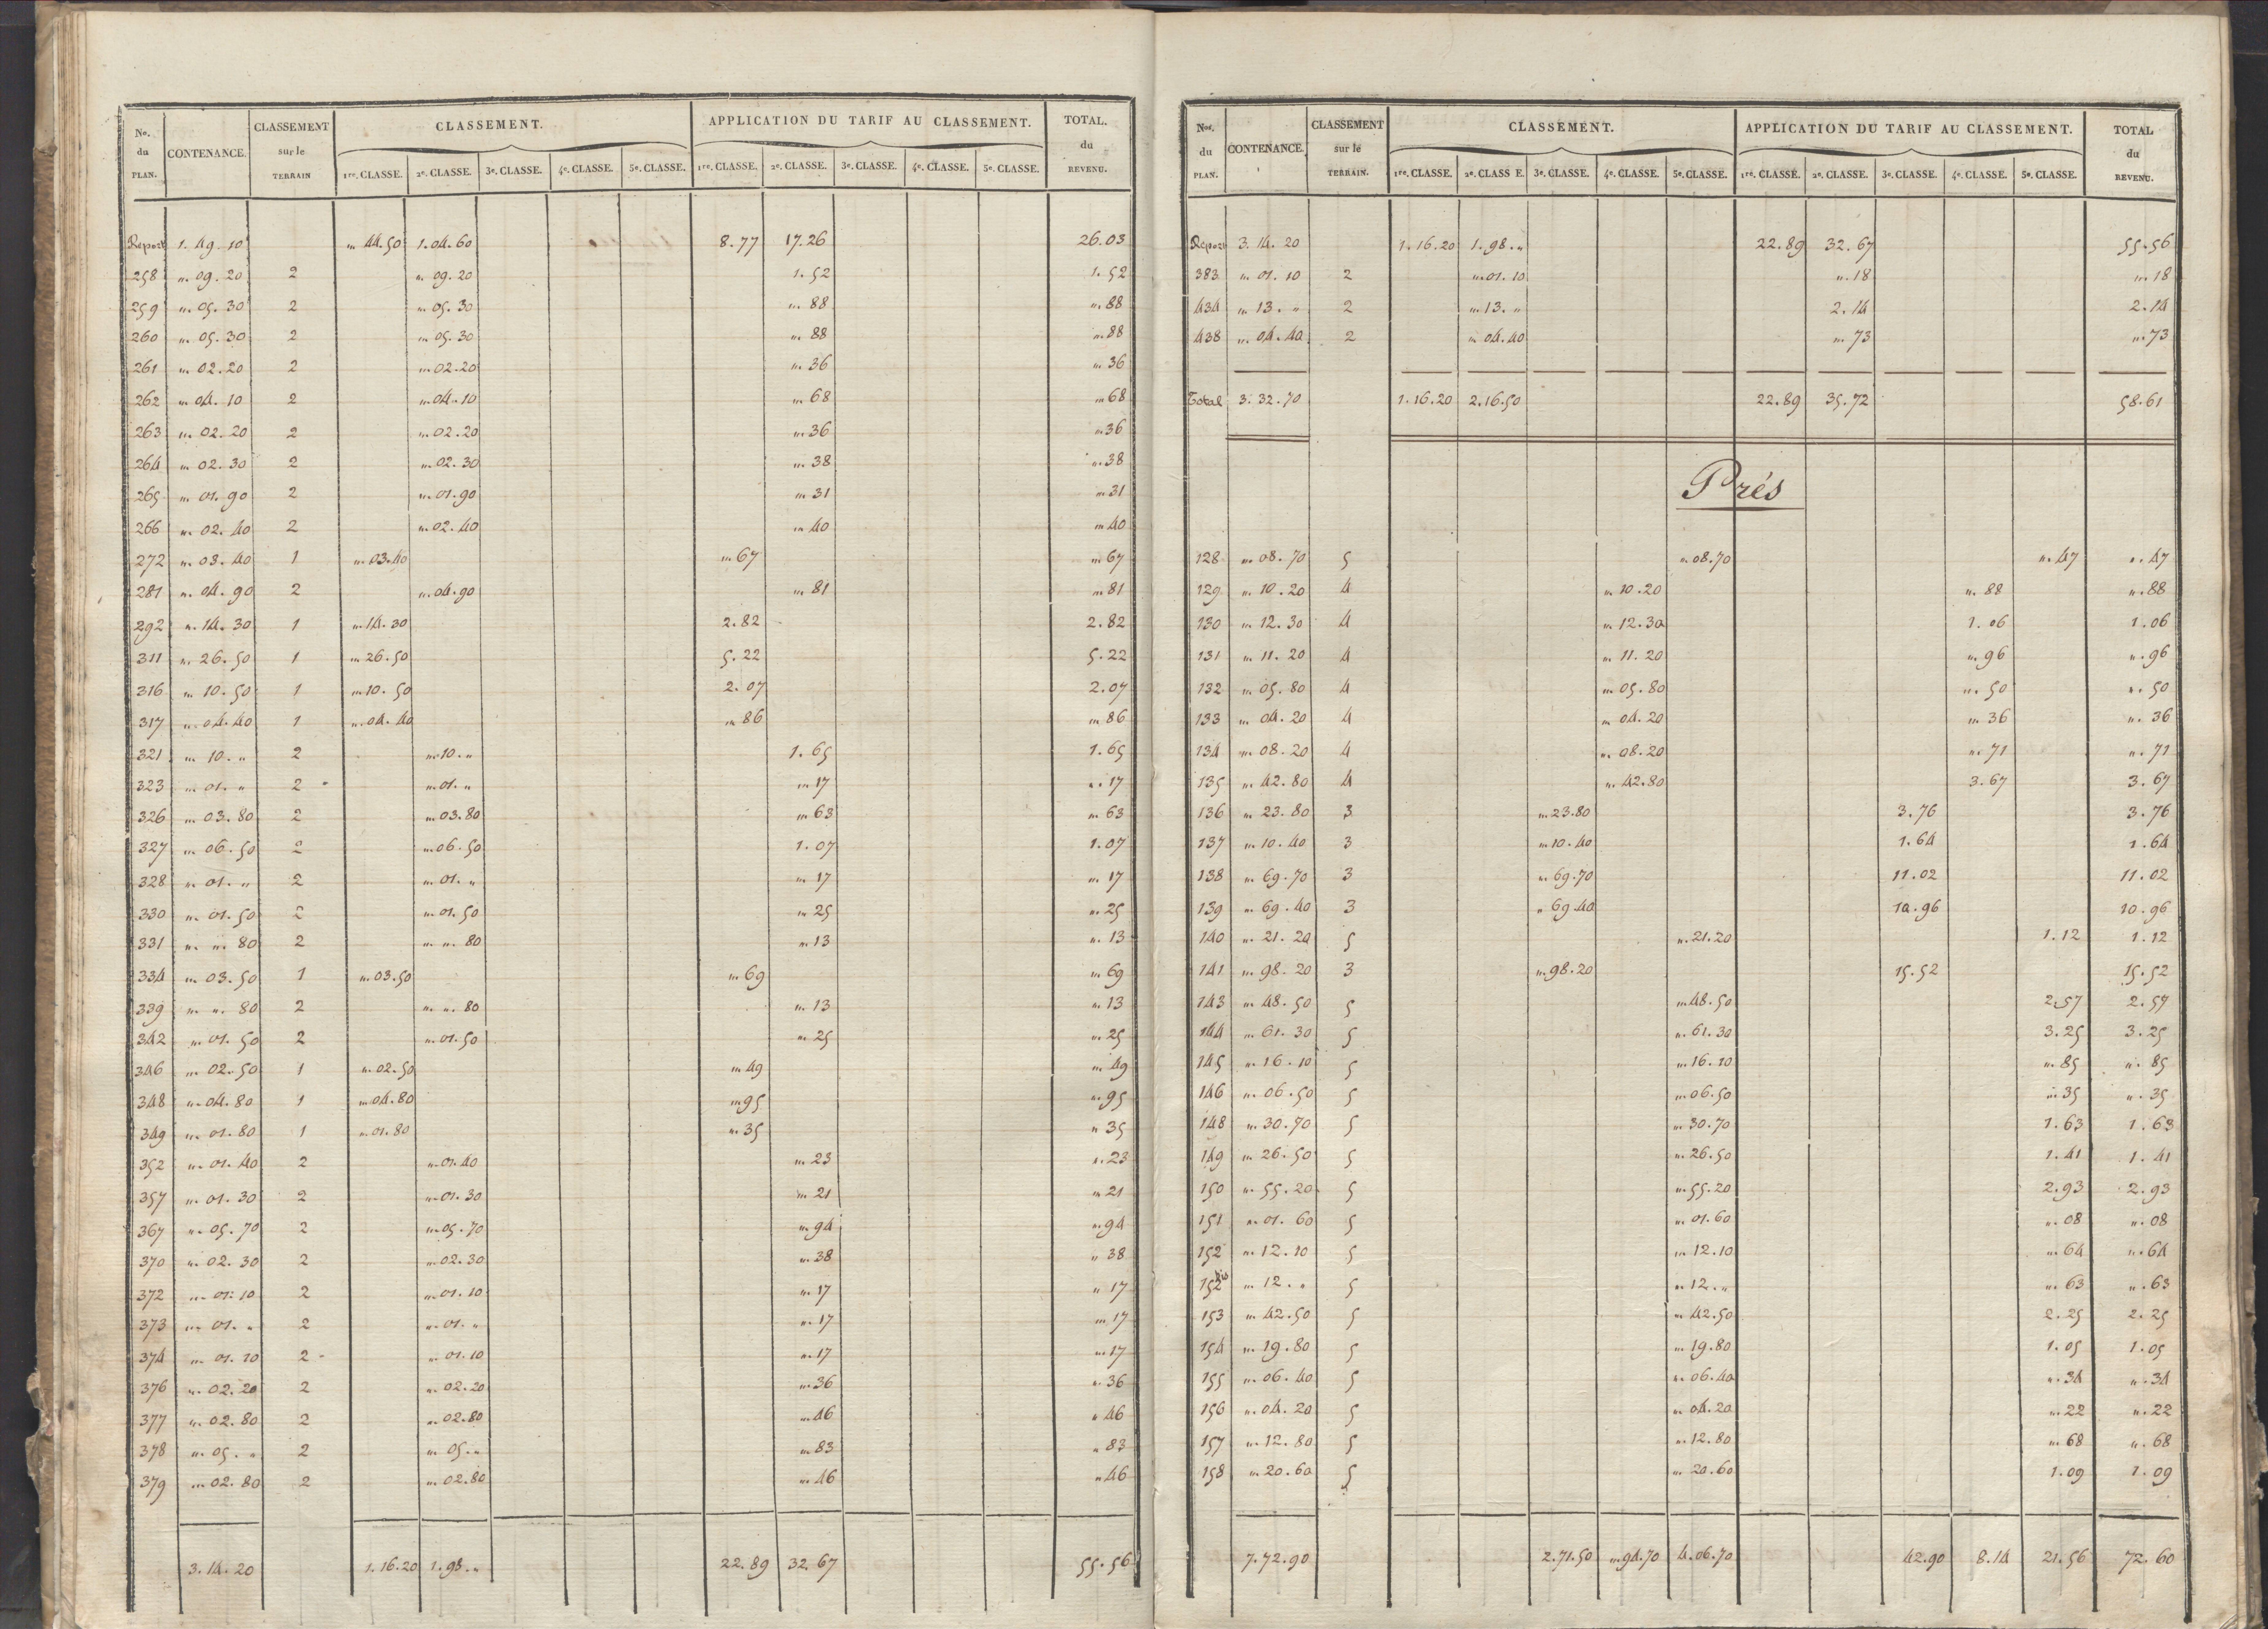 No. du PLAN. CONTENANCE. CLASSEMENT sur le TERRAIN CLASSEMENT. APPLICATION DU TARIF AU CLASSEMENT. TOTAL. du REVENU.
1re. CLASSE. 2e. CLASSE. 3e. CLASSE. 4e. CLASSE. 5e. CLASSE. 1re. CLASSE. 2e. CLASSE. 3e. CLASSE. 4e. CLASSE. 5e. CLASSE.
Report 1.49.10 „.44.50 1.04.60 8.77 17.26 26.03
258 „.09.20 2 „.09.20 1.52 1.52
259 „.05.30 2 „.05.30 „.88 „.88
260 „.05.30 2 „.05.30 „.88 „.88
261 „.02.20 2 „.02.20 „.36 „.36
262 „.04.10 2 „.04.10 „.68 „.68
263 „.02.20 2 „.02.20 „.36 „.36
264 „.02.30 2 „.02.30 „.38 „.38
265 „.01.90 2 „.01.90 „.31 „.31
266 „.02.40 2 „.02.40 „.40 „.40
272 „.03.40 1 „.03.40 „.67 „.67
281 „.04.90 2 „.04.90 „.81 „.81
292 „.14.30 1 „.14.30 2.82 2.82
311 „.26.50 1 „.26.50 5.22 5.22
316 „.10.50 1 „.10.50 2.07 2.07
317 „.04.40 1 „.04.40 „.86 „.86
321 „.10.„ 2 „.10.„ 1.65 1.65
323 „.01.„ 2 „.01.„ „.17 „.17
326 „.03.80 2 „.03.80 „.63 „.63
327 „.06.50 2 „.06.50 1.07 1.07
328 „.01.„ 2 „.01.„ „.17 „.17
330 „.01.50 2 „.01.50 „.25 „.25
331 „.„.80 2 „.„.80 „.13 „.13
334 „.03.50 1 „.03.50 „.69 „.69
339 „.„.80 2 „.„.80 „.13 „.13
342 „.01.50 2 „.01.50 „.25 „.25
346 „.02.50 1 „.02.50 „.49 „.49
348 „.04.80 1 „.04.80 „.95 „.95
349 „.01.80 1 „.01.80 „.35 „.35
352 „.01.40 2 „.01.40 „.23 „.23
357 „.01.30 2 „.01.30 „.21 „.21
367 „.05.70 2 „.05.70 „.94 „.94
370 „.02.30 2 „.02.30 „.38 „.38
372 „.01.10 2 „.01.10 „.17 „.17
373 „.01.„ 2 „.01.„ „.17 „.17
374 „.01.10 2 „.01.10 „.17 „.17
376 „.02.20 2 „.02.20 „.36 „.36
377 „.02.80 2 „.02.80 „.46 „.46
378 „.05.„ 2 „.05.„ „.83 „.83
379 „.02.80 2 „.02.80 „.46 „.46
3.14.20 1.16.20 1.98.„ 22.89 32.67 55.56
Nos. du PLAN. CONTENANCE. CLASSEMENT sur le TERRAIN. CLASSEMENT. APPLICATION DU TARIF AU CLASSEMENT. TOTAL du REVENU.
1re. CLASSE. 2e. CLASS E. 3e. CLASSE. 4e. CLASSE. 5e. CLASSE. 1re. CLASSE. 2e. CLASSE. 3e. CLASSE. 4e. CLASSE. 5e. CLASSE.
Report 3.14.20 1.16.20 1.98.„ 22.89 32.67 55.56
383 „.01.10 2 „.01.10 „.18 „.18
434 „.13.„ 2 „.13.„ 2.14 2.14
438 „.04.40 2 „.04.40 „.73 „.73
Total 3.32.70 1.16.20 2.16.50 22.89 35.72 58.61
Prés
128 „.08.70 5 „.08.70 „.47 „.47
129 „.10.20 4 „.10.20 „.88 „.88
130 „.12.30 4 „.12.30 1.06 1.06
131 „.11.20 4 „.11.20 „.96 „.96
132 „.05.80 4 „.05.80 „.50 „.50
133 „.04.20 4 „.04.20 „.36 „.36
134 „.08.20 4 „.08.20 „.71 „.71
135 „.42.80 4 „.42.80 3.67 3.67
136 „.23.80 3 „.23.80 3.76 3.76
137 „.10.40 3 „.10.40 1.64 1.64
138 „.69.70 3 „.69.70 11.02 11.02
139 „.69.40 3 „.69.40 10.96 10.96
140 „.21.20 5 „.21.20 1.12 1.12
141 „.98.20 3 „.98.20 15.52 15.52
143 „.48.50 5 „.48.50 2.57 2.57
144 „.61.30 5 „.61.30 3.25 3.25
145 „.16.10 5 „.16.10 „.85 „.85
146 „.06.50 5 „.06.50 „.35 „.35
148 „.30.70 5 „.30.70 1.63 1.63
149 „.26.50 5 „.26.50 1.41 1.41
150 „.55.20 5 „.55.20 2.93 2.93
151 „.01.60 5 „.01.60 „.08 „.08
152 „.12.10 5 „.12.10 „.64 „.64
152bis „.12.„ 5 „.12.„ „.63 „.63
153 „.42.50 5 „.42.50 2.25 2.25
154 „.19.80 5 „.19.80 1.05 1.05
155 „.06.40 5 „.06.40 „.34 „.34
156 „.04.20 5 „.04.20 „.22 „.22
157 „.12.80 5 „.12.80 „.68 „.68
158 „.20.60 5 „.20.60 1.09 1.09
7.72.90 2.71.50 „.94.70 4.06.70 42.90 8.14 21.56 72.60